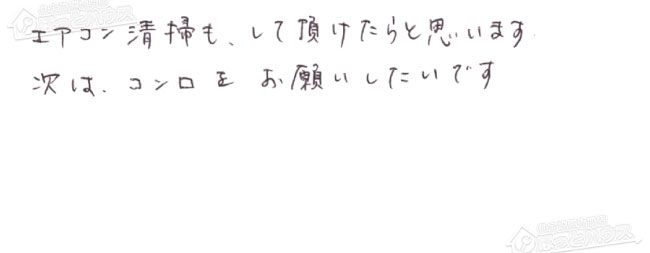 エアコン清掃も、して頂けたらと思います.
次は、コンロを お願いしたいです